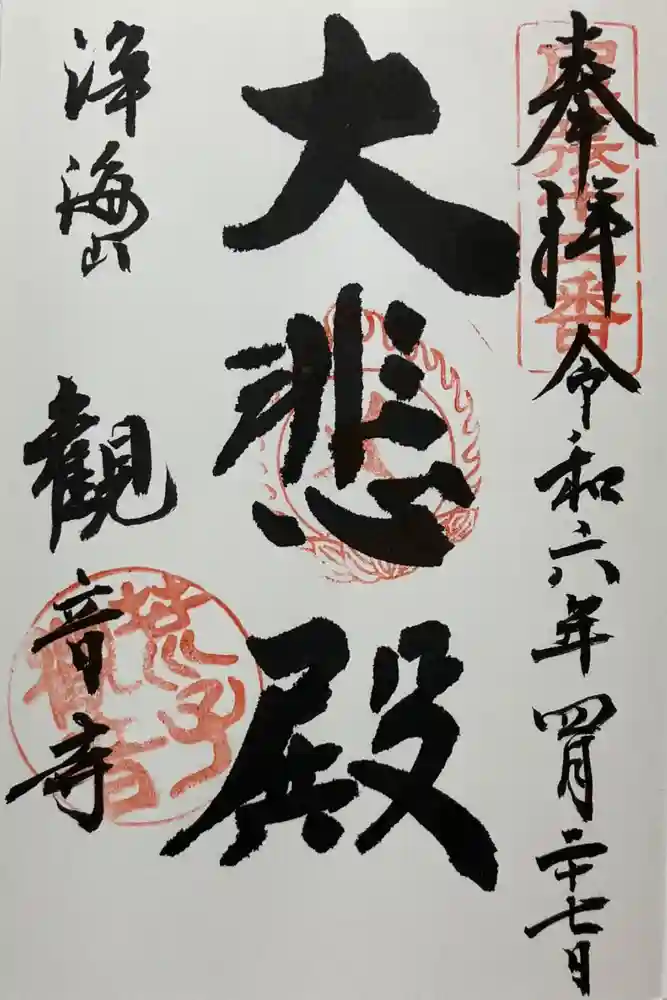 奉拝 令和六年四月二十七日
大悲殿
浄海山
觀音寺
荒子觀音